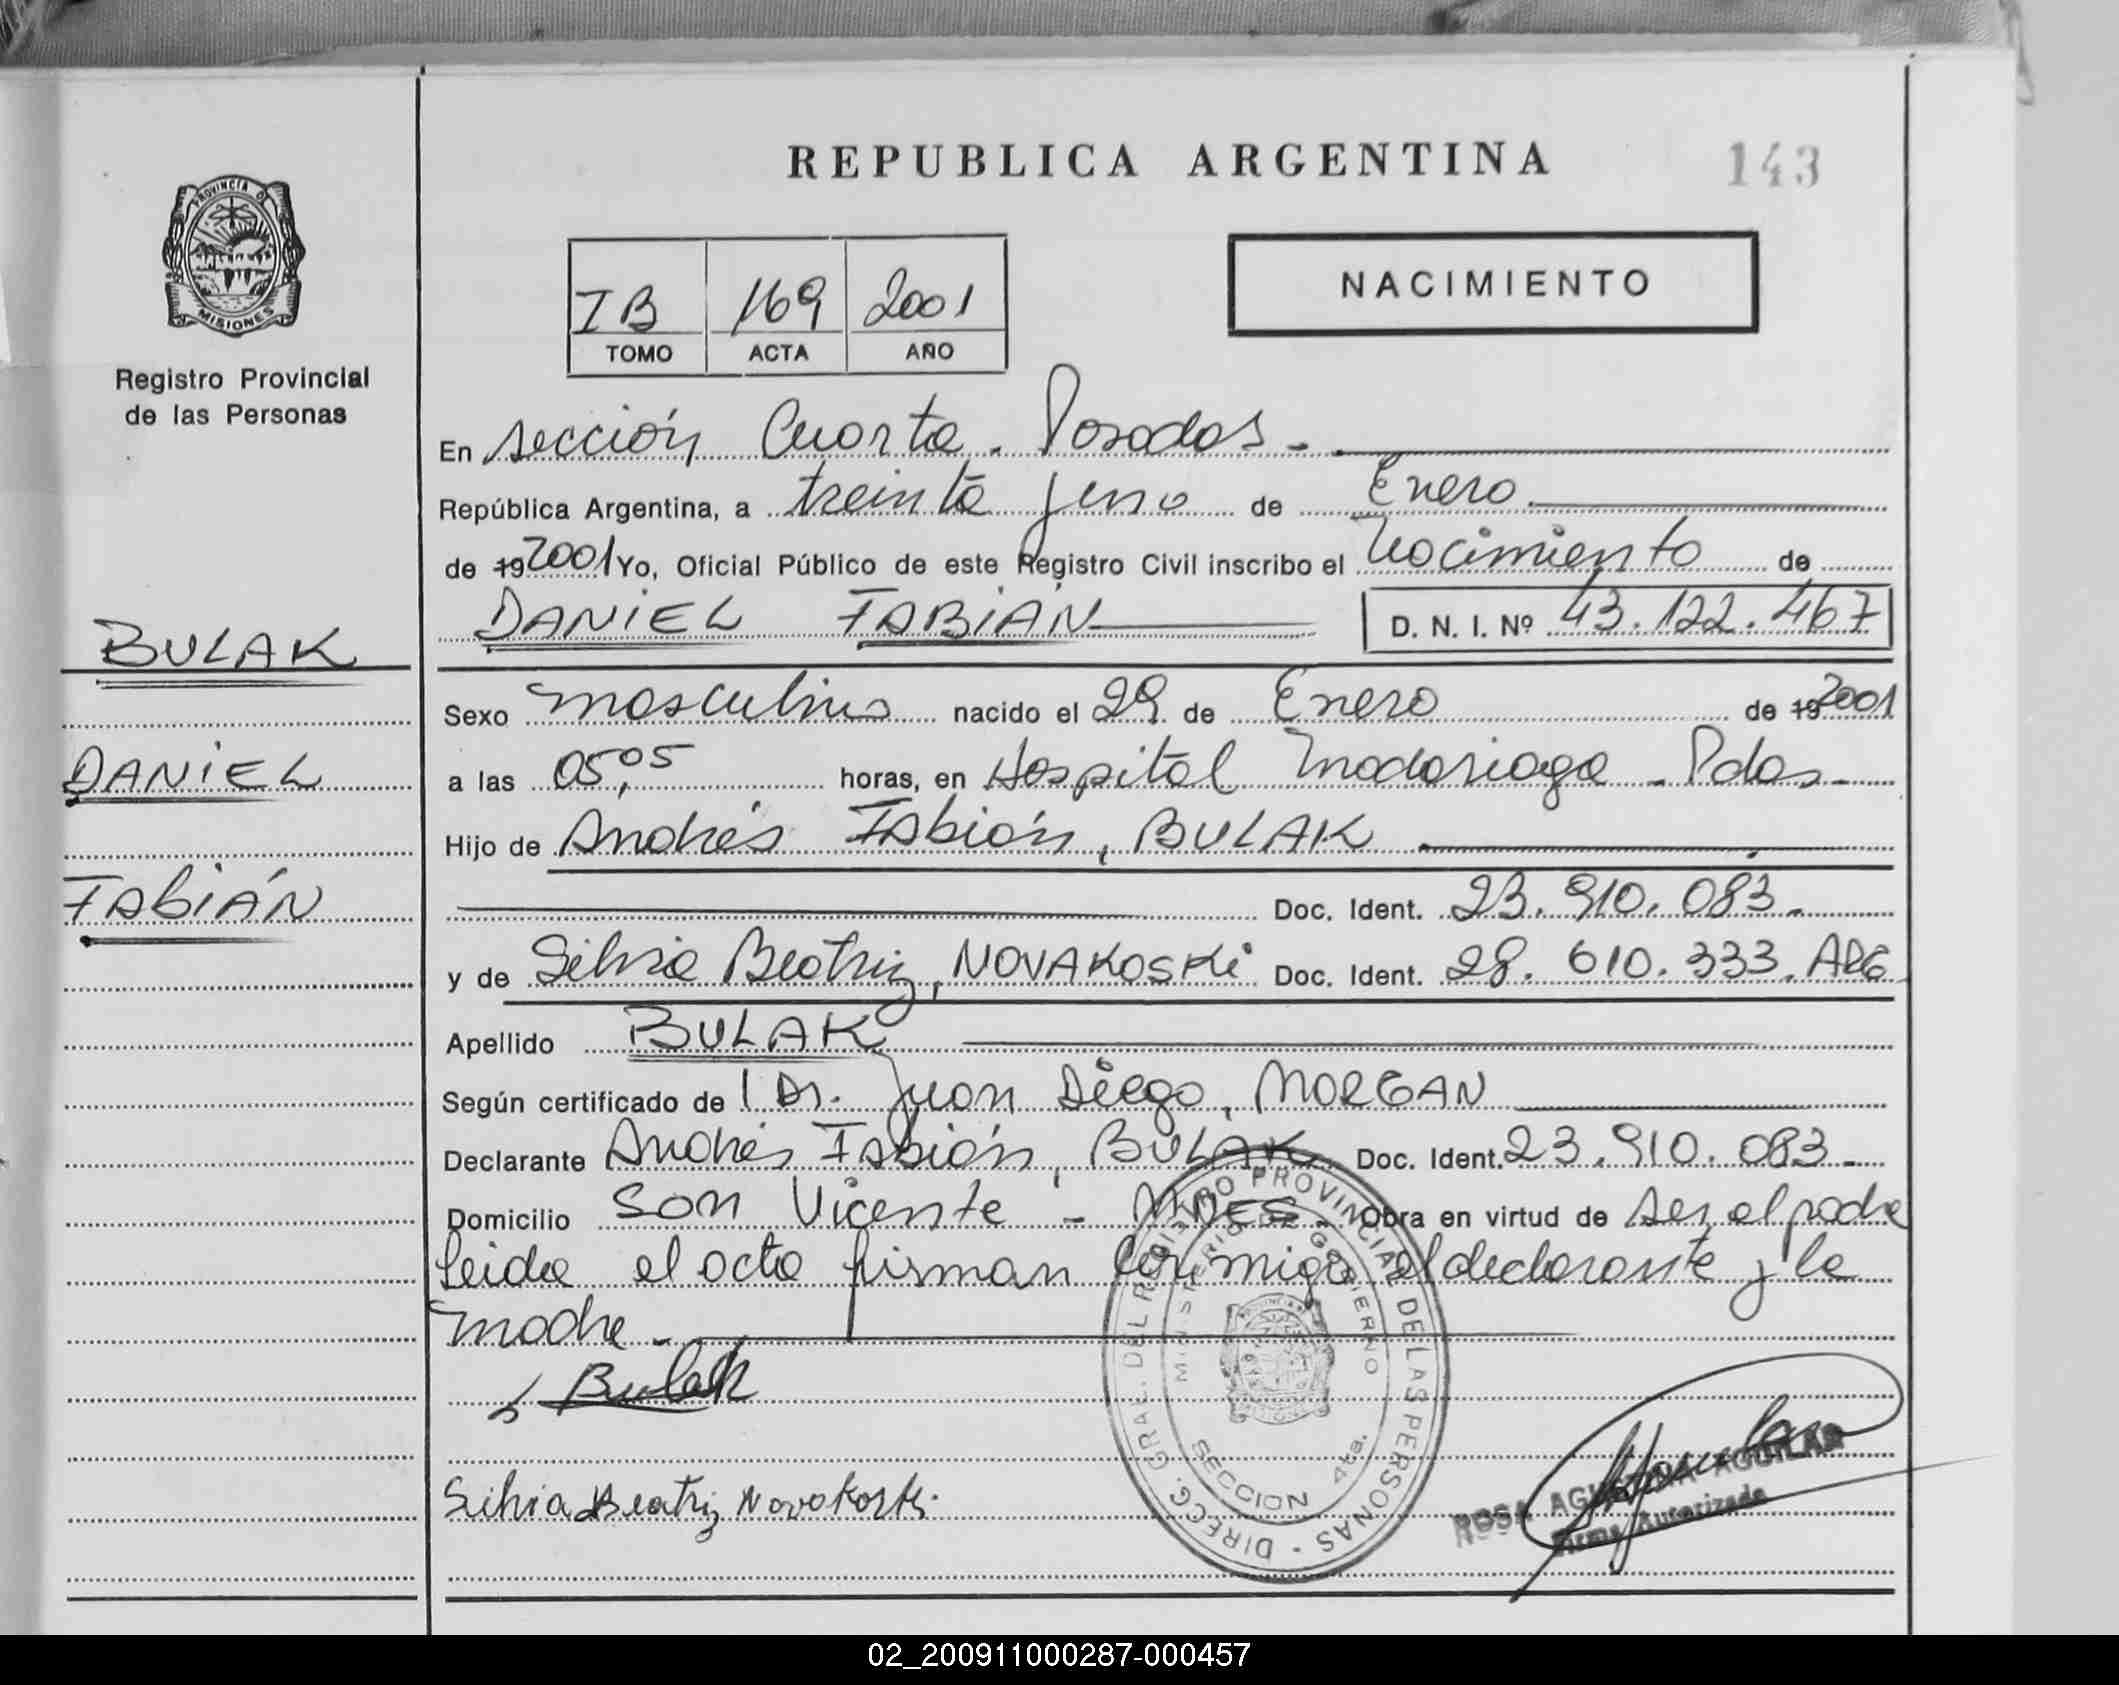 REPUBLICA ARGENTINA
143
PROVINCIA D
MISIONES
Registro Provincial
de las Personas
NACIMIENTO
IB 169 2001
TOMO ACTA AÑO
En Sección Cuarta. Posadas.-
República Argentina, a treinta y uno de Enero
de 19 2001 Yo, Oficial Público de este Registro Civil inscribo el Nacimiento de
DANIEL FABIÁN D. N. I. Nº 43.122.467
BULAK
DANIEL
FABIÁN
Sexo masculino nacido el 29 de Enero de 19 2001
a las 05,05 horas, en Hospital Madariaga - Pdas -
Hijo de Andrés Fabián, BULAK
Doc. Ident. 23.910.083.
y de Silvia Beatriz, NOVAKOSKi Doc. Ident. 28.610.333. ARG.
Apellido BULAK
Según certificado de l Dr. Juan Diego, MORGAN
Declarante Andrés Fabián, BULAK Doc. Ident. 23.910.083.-
Domicilio San Vicente - MNES. Obra en virtud de ser el padre
Leida el acta firman conmigo el declarante y la
madre.-
Bulak
Silvia Beatriz Novakoski
DIRECC. GRAL. DEL REGISTRO PROVINCIAL DE LAS PERSONAS -
MINISTERIO DE GOBIERNO
SECCION 4ta.
ROSA AGUSTINA AGUILAR
Firma Autorizada
02_200911000287-000457